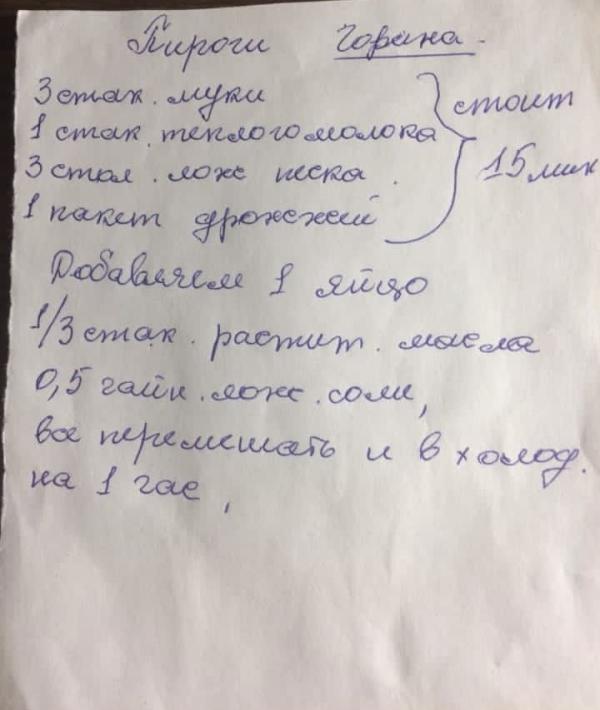 Пироги Чорана.
3 стак. муки
1 стак. теплого молока
3 стол. лож песка.
1 пакет дрожжей
стоит
15 мин
Добавляем 1 яйцо
1/3 стак. растит. масла
0,5 чайн. лож. соли,
все перемешать и в холод.
на 1 час,